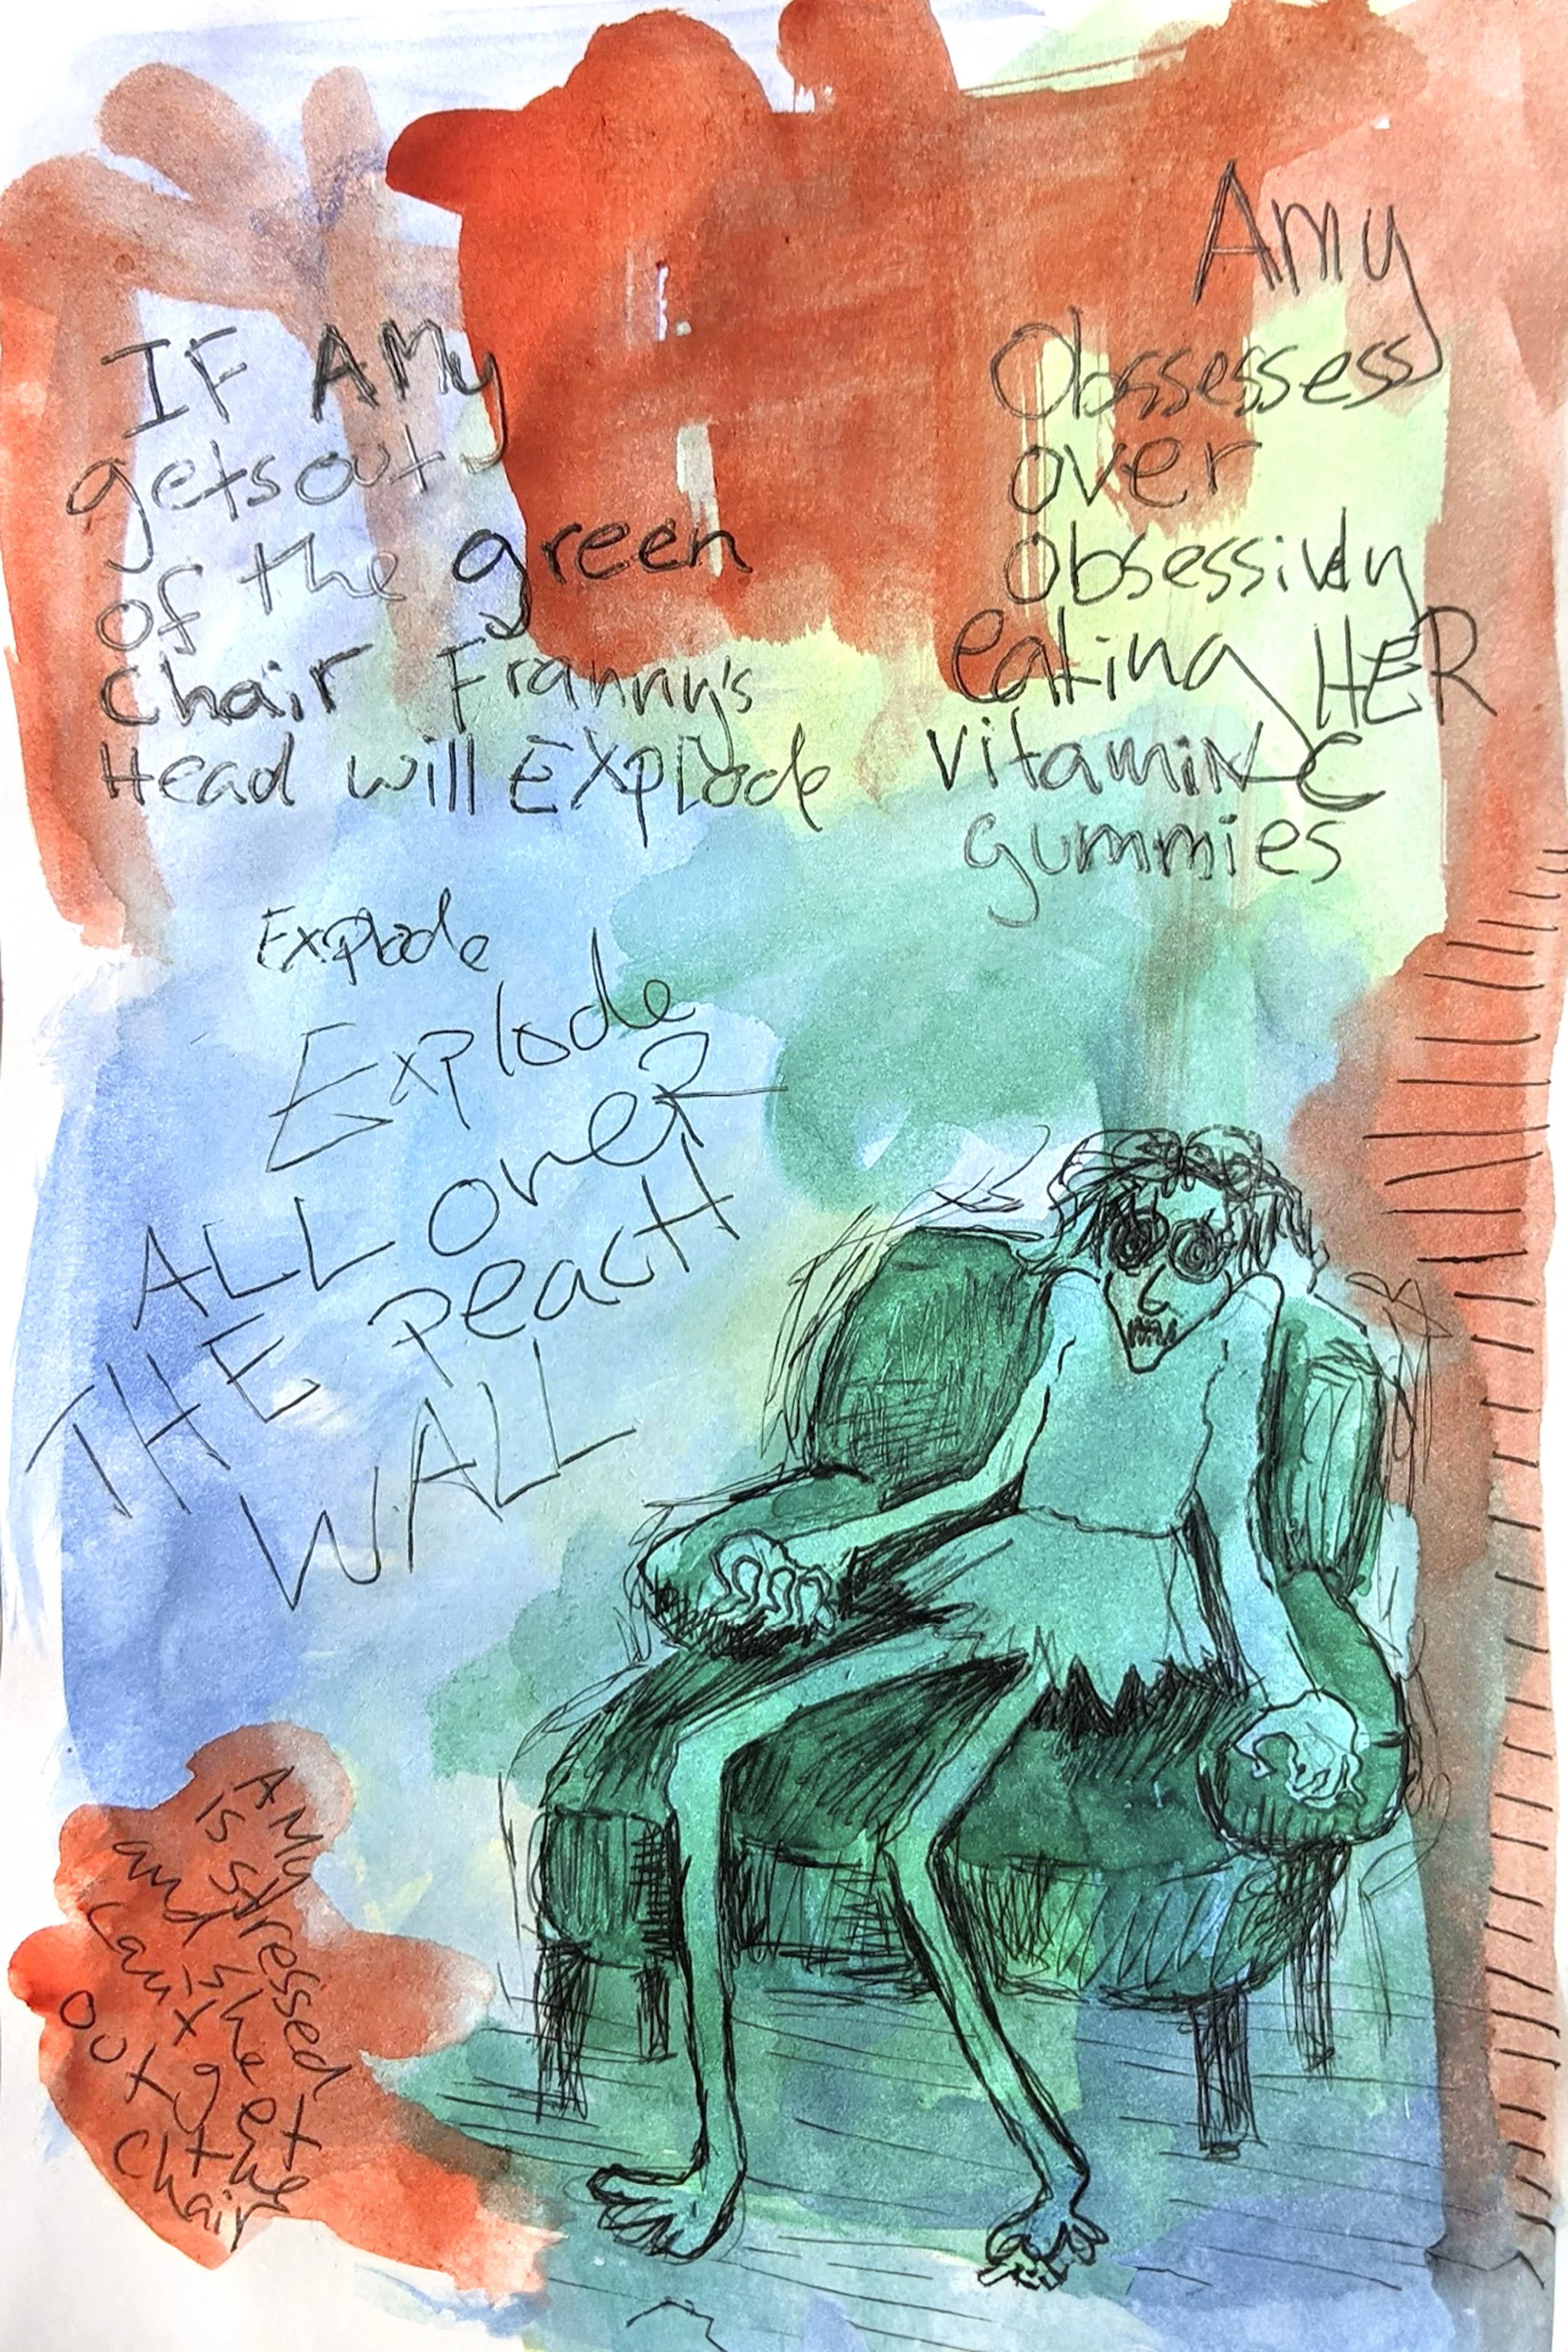 IF AMy
gets out
of the green
Chair Franny's
Head will EXplode
Explode
Explode
ALL over
THE PeacH
WALL
Amy
Obssessess
over
Obsessivly
eating HER
VitamiN C
gummies
AMy
is stressed
and she
can't get
out the
Chair